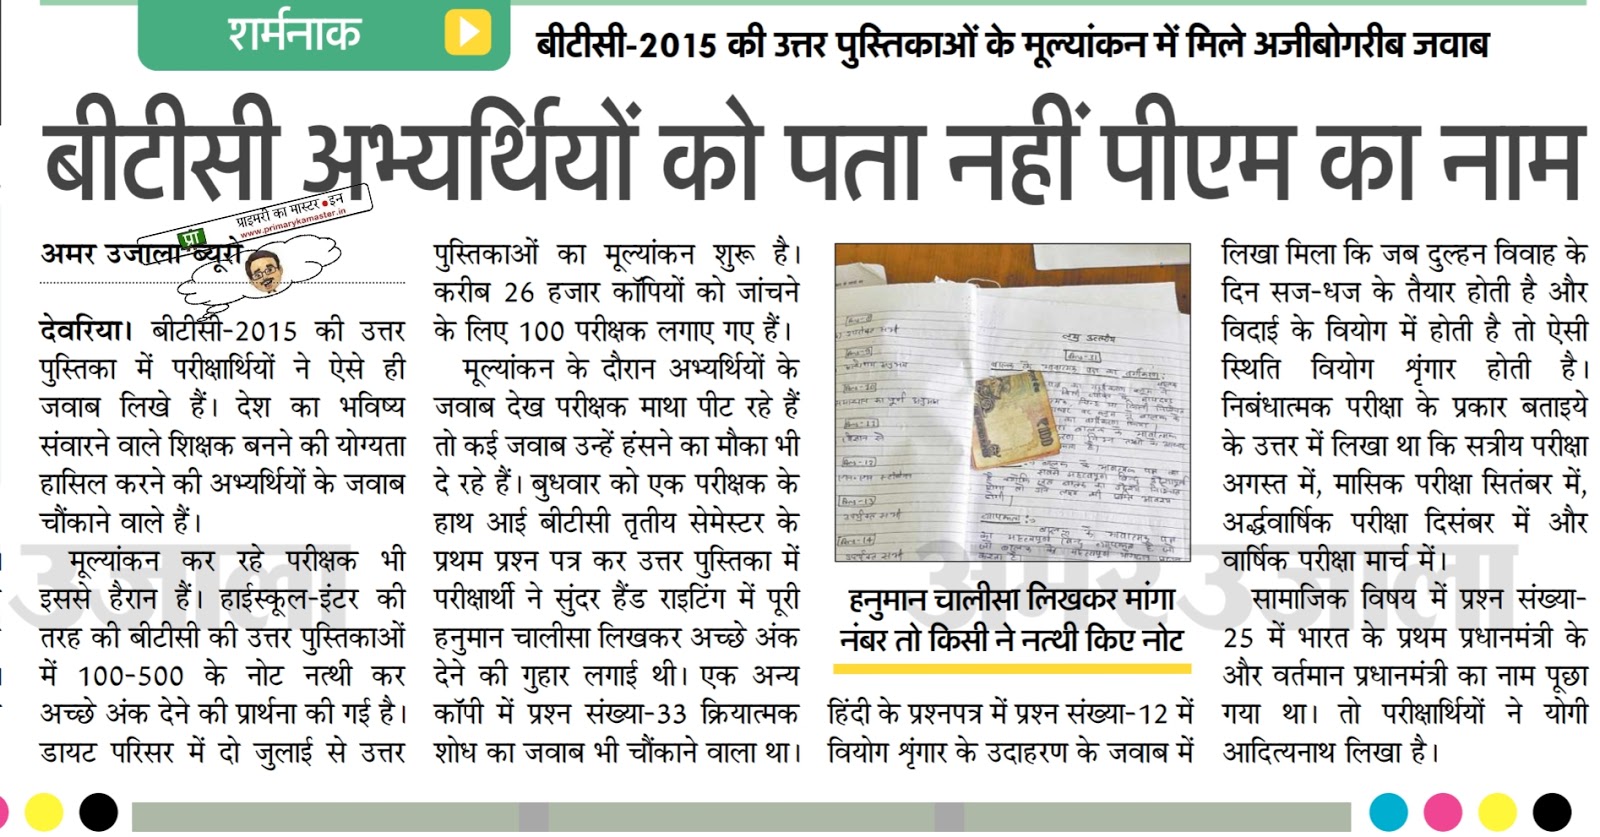 शर्मनाक
बीटीसी-2015 की उत्तर पुस्तिकाओं के मूल्यांकन में मिले अजीबोगरीब जवाब
बीटीसी अभ्यर्थियों को पता नहीं पीएम का नाम
प्राइमरी का मास्टर • इन
www.primarykamaster.in
प्रा
अमर उजाला ब्यूरो
देवरिया। बीटीसी-2015 की उत्तर
पुस्तिका में परीक्षार्थियों ने ऐसे ही
जवाब लिखे हैं। देश का भविष्य
संवारने वाले शिक्षक बनने की योग्यता
हासिल करने की अभ्यर्थियों के जवाब
चौंकाने वाले हैं।
मूल्यांकन कर रहे परीक्षक भी
इससे हैरान हैं। हाईस्कूल-इंटर की
तरह की बीटीसी की उत्तर पुस्तिकाओं
में 100-500 के नोट नत्थी कर
अच्छे अंक देने की प्रार्थना की गई है।
डायट परिसर में दो जुलाई से उत्तर
पुस्तिकाओं का मूल्यांकन शुरू है।
करीब 26 हजार कॉपियों को जांचने
के लिए 100 परीक्षक लगाए गए हैं।
मूल्यांकन के दौरान अभ्यर्थियों के
जवाब देख परीक्षक माथा पीट रहे हैं
तो कई जवाब उन्हें हंसने का मौका भी
दे रहे हैं। बुधवार को एक परीक्षक के
हाथ आई बीटीसी तृतीय सेमेस्टर के
प्रथम प्रश्न पत्र कर उत्तर पुस्तिका में
परीक्षार्थी ने सुंदर हैंड राइटिंग में पूरी
हनुमान चालीसा लिखकर अच्छे अंक
देने की गुहार लगाई थी। एक अन्य
कॉपी में प्रश्न संख्या-33 क्रियात्मक
शोध का जवाब भी चौंकाने वाला था।
हनुमान चालीसा लिखकर मांगा
नंबर तो किसी ने नत्थी किए नोट
हिंदी के प्रश्नपत्र में प्रश्न संख्या-12 में
वियोग शृंगार के उदाहरण के जवाब में
लिखा मिला कि जब दुल्हन विवाह के
दिन सज-धज के तैयार होती है और
विदाई के वियोग में होती है तो ऐसी
स्थिति वियोग शृंगार होती है।
निबंधात्मक परीक्षा के प्रकार बताइये
के उत्तर में लिखा था कि सत्रीय परीक्षा
अगस्त में, मासिक परीक्षा सितंबर में,
अर्द्धवार्षिक परीक्षा दिसंबर में और
वार्षिक परीक्षा मार्च में।
सामाजिक विषय में प्रश्न संख्या-
25 में भारत के प्रथम प्रधानमंत्री के
और वर्तमान प्रधानमंत्री का नाम पूछा
गया था। तो परीक्षार्थियों ने योगी
आदित्यनाथ लिखा है।
उजाला
अमर उजाला